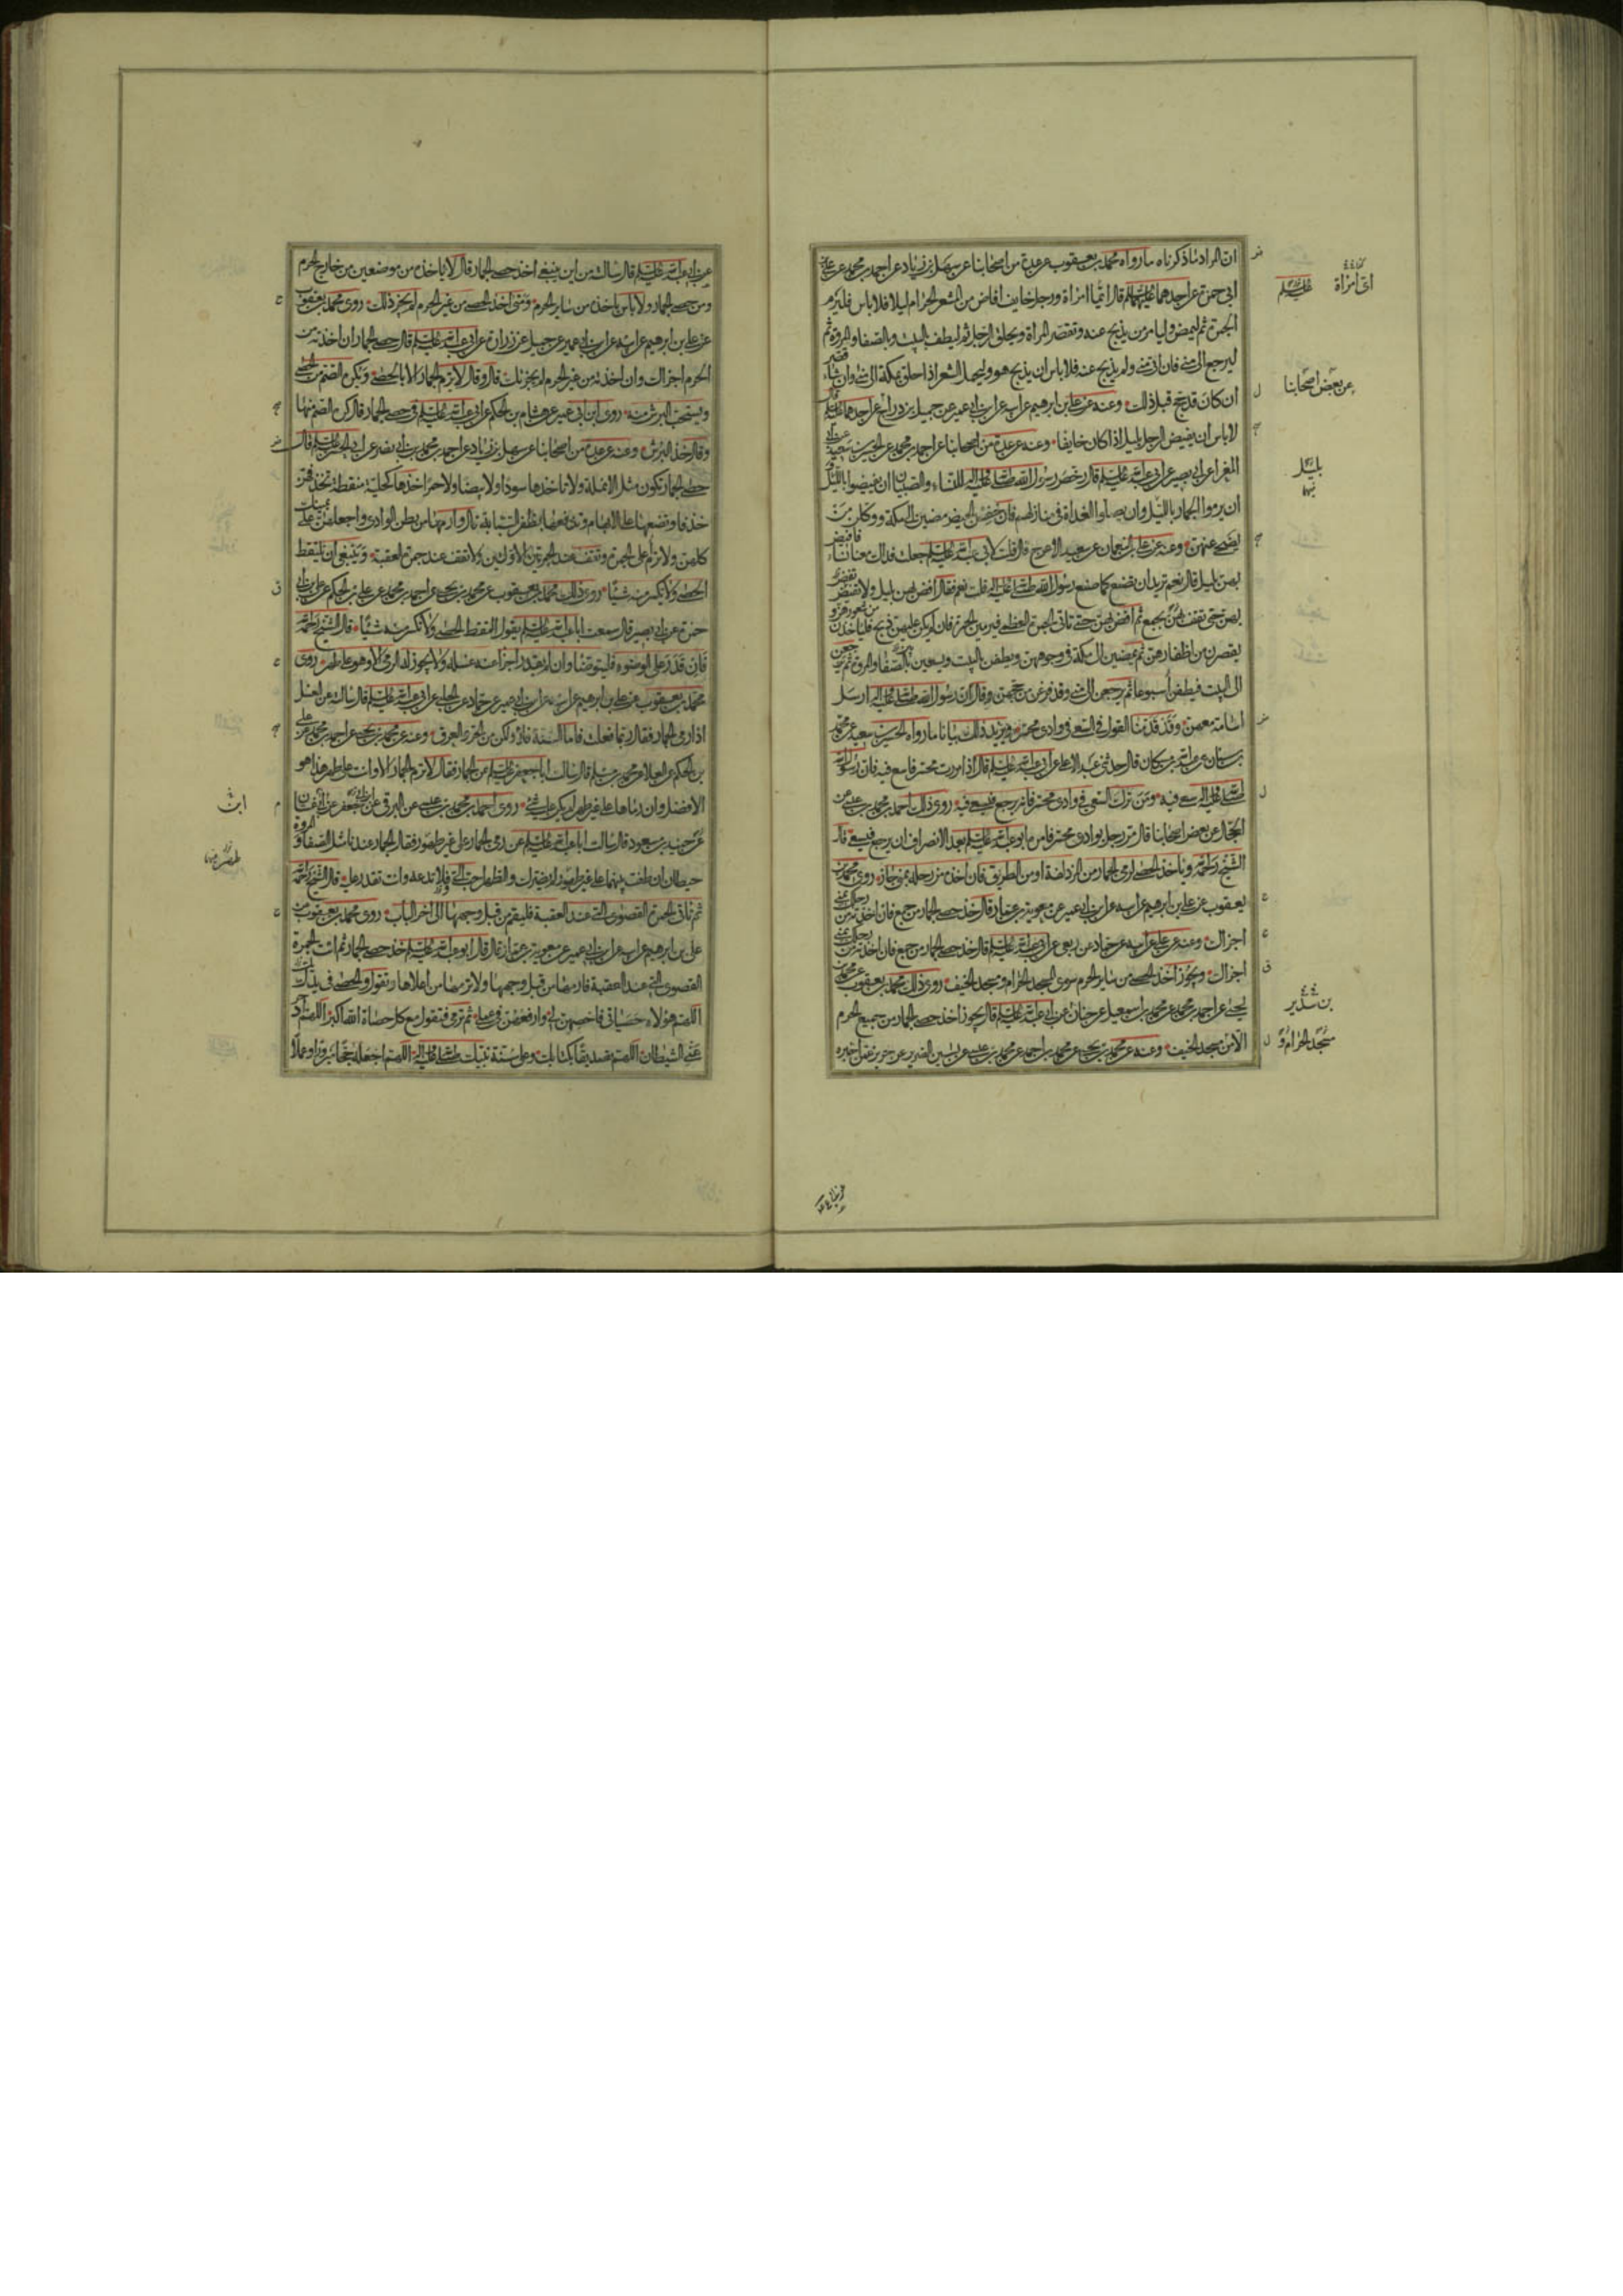 ان المراد ما ذكرناه ما رواه محمد بن يعقوب عن عدة من اصحابنا عن سهل بن زياد عن احمد بن محمد عن علي بن
ابي حمزة عن احدهما عليهما السلام قال ايما امراة ورجل خايف افاض من المشعر الحرام ليلا فلا باس فليرم
الجمرة ثم ليمض وليامر من يذبح عنه وتقصر المراة ويحلق الرجل ثم ليطف بالبيت وبالصفا والمروة ثم
ليرجع الى منى فان اتى منى ولم يذبح عنه فلا باس ان يذبح هو وليحمل الشعر اذا حلق بمكة الى منى وان شاء قصر
ان كان قد حج قبل ذلك وعنه عن علي بن ابرهيم عن ابيه عن ابن ابي عمير عن جميل بن دراج عن احدهما عليهما السلام قال
لا باس ان يفيض الرجل بليل اذا كان خايفا وعنه عن عدة من اصحابنا عن احمد بن محمد عن الحسين بن سعيد عن ابي
المغرا عن ابي بصير عن ابي عبد الله عليه السلام قال رخص رسول الله صلى الله عليه واله للنساء والصبيان ان يفيضوا بالليل
ان يرموا الجمار بالليل وان يصلوا الغداة في منازلهم فان خفن الحيض مضين الى مكة ووكلن من
يضحي عنهن وعنه عن علي بن النعمان عن سعيد الاعرج قال قلت لابي عبد الله عليه السلام جعلت فداك معنا نساء فافيض
بهن بليل قال نعم تريد ان تصنع كما صنع رسول الله صلى الله عليه واله قلت نعم فقال افض بهن بليل ولا تفض
بهن حتى تقف بهن بجمع ثم افض بهن حتى تاتي الجمرة العظمى فيرمين الجمرة فان لم يكن عليهن ذبح فلياخذن من شعورهن و
يقصرن من اظفارهن ثم يمضين الى مكة في وجوههن ويطفن بالبيت ويسعين بين الصفا والمروة ثم يرجعن
الى البيت فيطفن اسبوعا ثم يرجعن الى منى وقد فرغن من حجهن وقال ان رسول الله صلى الله عليه واله ارسل
اسامة معهن وقد قدمنا القول في السعي في وادي محسر ويزيد ذلك بيانا ما رواه الحسين بن سعيد عن محمد
بن سنان عن عبد الله بن مسكان قال حدثني عبد الاعلى عن ابي عبد الله عليه السلام قال اذا مررت بمحسر فاسع فيه فان رسول الله
صلى الله عليه واله سعى فيه ومن ترك السعي في وادي محسر فانه يرجع فيسعى فيه روى ذلك احمد بن محمد بن عيسى عن
الحجال عن بعض اصحابنا قال مر رجل بوادي محسر فامره ابو عبد الله عليه السلام بعد الانصراف ان يرجع فيسعى قال
الشيخ رحمه الله وياخذ الحصى لرمي الجمار من المزدلفة او من الطريق فان اخذه من رحله بمنى جاز روى محمد بن
يعقوب عن علي بن ابرهيم عن ابيه عن ابن ابي عمير عن معوية بن عمار قال خذ حصى الجمار من جمع فان اخذته من رحلك بمنى
اجزاك وعنه عن علي عن ابيه عن حماد عن ربعي عن ابي عبد الله عليه السلام قال خذ حصى الجمار من جمع فان اخذته من رحلك بمنى
اجزاك ويجوز اخذ الحصى من ساير الحرم سوى المسجد الحرام ومسجد الخيف روى ذلك محمد بن يعقوب عن محمد بن
يحيى عن احمد بن محمد عن محمد بن اسمعيل عن حنان عن ابي عبد الله عليه السلام قال يجوز اخذ حصى الجمار من جميع الحرم
الا من مسجد الخيف وعنه عن محمد بن يحيى عن محمد بن احمد عن محمد بن عيسى عن ياسين الضرير عن حريز عمن اخبره
اي امراة
عليه السلام
عن بعض اصحابنا
بليل
بن سدير
مسجد الحرام و
عن ابي عبد الله عليه السلام قال سالته من اين ينبغي اخذ حصى الجمار قال لا تاخذه من موضعين من خارج الحرم
ومن حصى الجمار ولا باس باخذه من ساير الحرم ومتى اخذ الحصى من غير الحرم لم يجز ذلك روى محمد بن يعقوب
عن علي بن ابرهيم عن ابيه عن ابن ابي عمير عن جميل عن زرارة عن ابي عبد الله عليه السلام قال حصى الجمار ان اخذته من
الحرم اجزاك وان اخذته من غير الحرم لم يجزئك قال وقال لا ترم الجمار الا بالحصى ويكره الصم من الحصى
ويستحب البرش منه روى ابن ابي عمير عن هشام بن الحكم عن ابي عبد الله عليه السلام في حصى الجمار قال كره الصم منها
وقال خذ البرش وعنه عن عدة من اصحابنا عن سهل بن زياد عن احمد بن محمد بن ابي نصر عن ابي الحسن عليه السلام قال
حصى الجمار تكون مثل الانملة ولا تاخذها سوداء ولا بيضاء ولا حمراء خذها كحلية منقطة تخذفهن
خذفا وتضعها على الابهام وتدفعها بظفر السبابة قال وارمها من بطن الوادي واجعلهن على يمينك
كلهن ولا ترم على الجمرة وتقف عند الجمرتين الاولين ولا تقف عند جمرة العقبة وينبغي ان يلتقط
الحصى ولا يكسر منه شيئا روى ذلك محمد بن يعقوب عن محمد بن يحيى عن احمد بن محمد عن علي بن الحكم عن علي بن ابي
حمزة عن ابي بصير قال سمعت ابا عبد الله عليه السلام يقول التقط الحصى ولا تكسر منه شيئا قال الشيخ رحمه الله
فان قدر على الوضوء فليتوضا وان لم يقدر اجزا عنه غسله ولا يجوز له الرمي الا وهو على طهر روى
محمد بن يعقوب عن علي بن ابرهيم عن ابيه عن ابن ابي عمير عن حماد عن الحلبي عن ابي عبد الله عليه السلام قال سالته عن الغسل
اذا رمى الجمار فقال ربما فعلت فاما السنة فلا ولكن من الحر والعرق وعنه عن محمد بن يحيى عن احمد بن محمد عن علي
بن الحكم عن العلا عن محمد بن مسلم قال سالت ابا جعفر عليه السلام عن الجمار فقال لا ترم الجمار الا وانت على طهر هذا هو
الافضل وان رماها على غير طهر لم يكن عليه شيء روى احمد بن محمد بن عيسى عن البرقي عن ابي جعفر عن ابي غسان
عن حميد بن مسعود قال سالت ابا عبد الله عليه السلام عن رمي الجمار على غير طهور فقال الجمار عندنا مثل الصفا والمروة
حيطان ان طفت بينهما على غير طهور لم يضرك والطهر احب الي فلا تدعه وانت تقدر عليه قال الشيخ رحمه الله
ثم تاتي الجمرة القصوى التي عند العقبة فليقم من قبل وجهها الى اخر الباب روى محمد بن يعقوب عن
علي بن ابرهيم عن ابيه عن ابن ابي عمير عن معوية بن عمار قال قال ابو عبد الله عليه السلام خذ حصى الجمار ثم ائت الجمرة
القصوى التي عند العقبة فارمها من قبل وجهها ولا ترمها من اعلاها وتقول والحصى في يدك
اللهم هؤلاء حصياتي فاحصهن لي وارفعهن في عملي ثم ترمي فتقول مع كل حصاة الله اكبر اللهم ادحر
عني الشيطان اللهم تصديقا بكتابك وعلى سنة نبيك صلى الله عليه واله اللهم اجعله حجا مبرورا وعملا